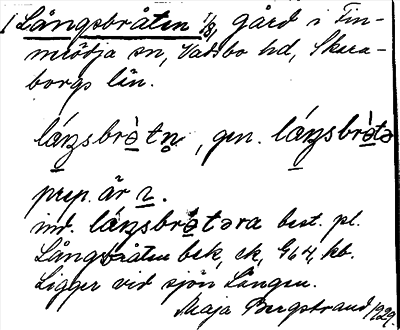 1 Långsbråten 1/8, gård i Fin-
nerödja sn, Vadsbo hd, Skara-
borgs län.
láŋsbrə̀tn̥, gen. láŋsbrə̀tə
prep. är 2.
inv. láŋsbrə̀təra best. pl.
Långsbråten bek, ek, G64, kb.
Ligger vid sjön Lången.
Maja Bergstrand 1929.